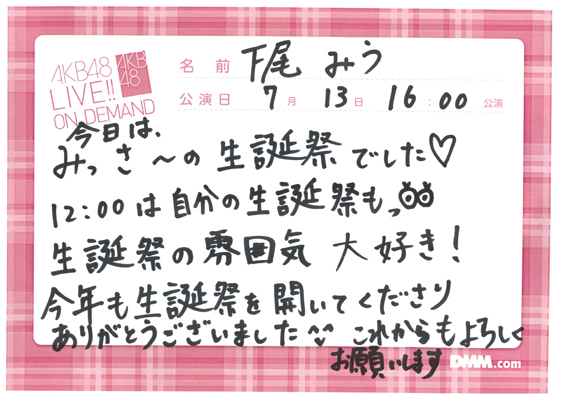 AKB48
LIVE!!
ON DEMAND
AKB
48
名 前 下尾 みう
公演日 7月 13日 16:00 公演
今日は、
みっさ〜の 生誕祭 でした♡
12:00 は 自分の生誕祭もっ
生誕祭の雰囲気 大好き!
今年も生誕祭を 開いてくださり
ありがとうございました これからもよろしく
お願いします
DMM.com